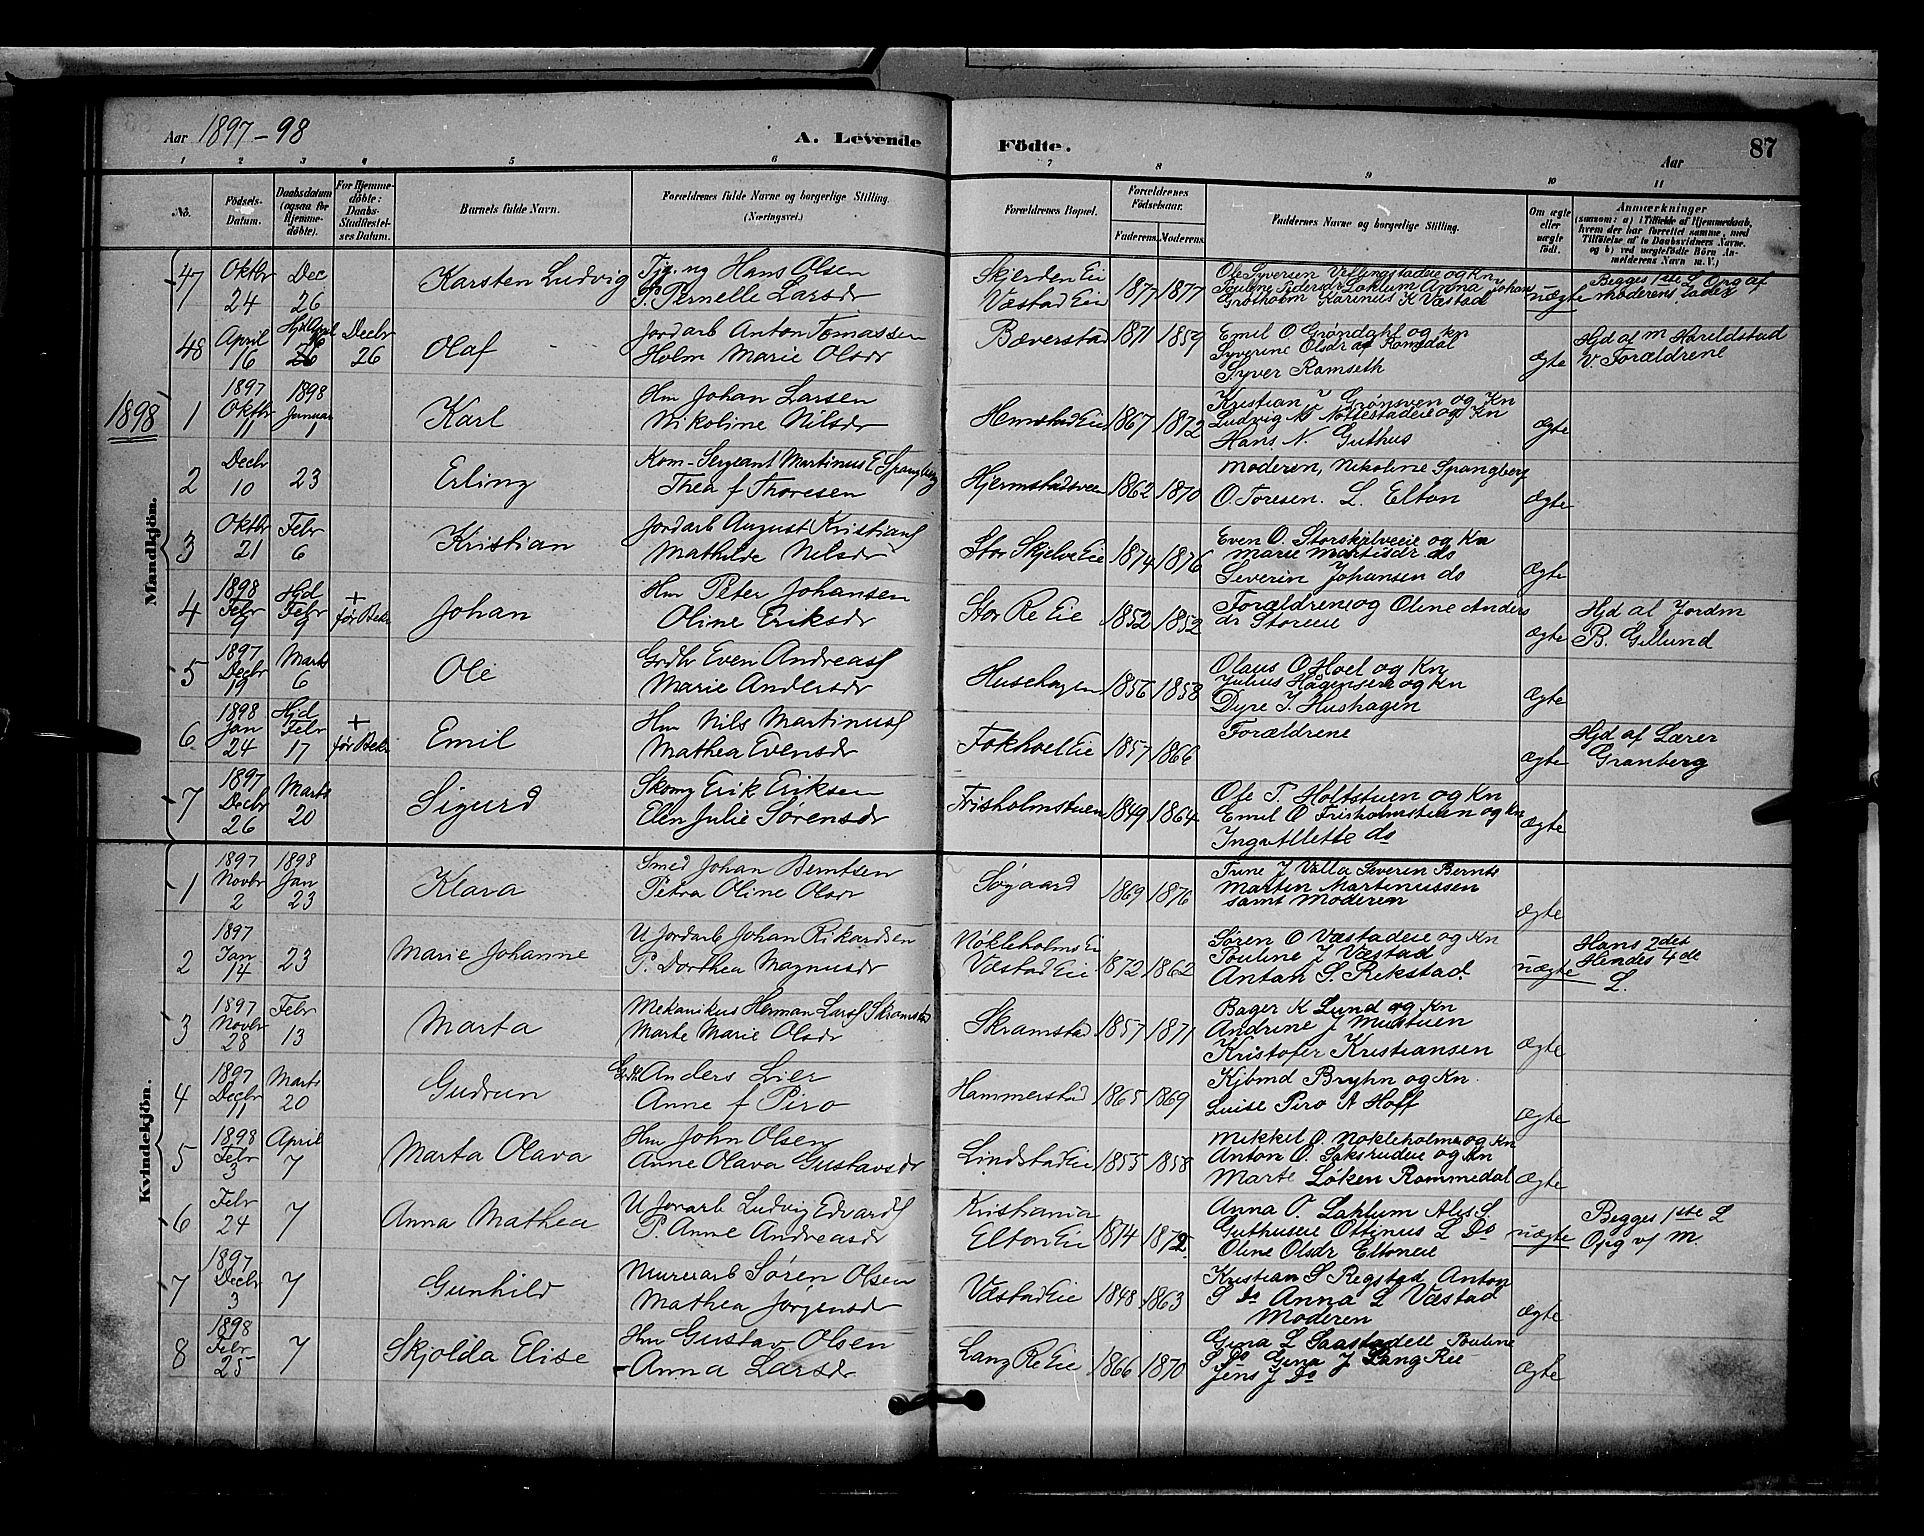 Aar 1897-98
A. Levende Födte.
Aar 87
1 2 3 4 5 6 7 8 9 10 11
No.
Födsels-Datum.
Daabsdatum (ogsaa for Hjemme-döbte).
For Hjemme-döbte: Daabs-Stadfæstel-ses Datum.
Barnets fulde Navn.
Forældrenes fulde Navne og borgerlige Stilling. (Næringsvei.)
Forældrenes Bopæl.
Forældrenes Födselsaar.
Faderens. Moderens.
Faddernes Navne og borgerlige Stilling.
Om ægte eller uægte födt.
Anmærkninger (saasom: a) i Tilfælde af Hjemmedaab, hvem der har forrettet samme, med Tilföielse af to Daabsvidners Navne, og b) ved uægtefödte Börn An-melderens Navn m. V.)
Mandkjön.
47 Oktbr 24 Dec 26 Karsten Ludvig Tjg. ug Hans Olsen
P. Pernelle Larsdr
Skjerden Eie Væstad Eie 1877 1877 Ole Syversen Vellingstadeie og Kn
Pouline Pedersdr Loklum Anna Johan
Grøtholm Karinus K Væstad uægte
Begges 1ste L Opg af moderens Fader
48 April 16 Decbr 26 Olaf Jordarb Anton Tomassen
Holm Marie Olsdr
Bæverstad 1871 1859 Emil O Grøndahl og Kn
Syverine Olsdr af Romedal
Syver Romseth Ægte
Hjd af M Harildstad
v. Forældrene
1898
1 1897 Oktbr 11 1898 Januar 1 Karl Hm Johan Larsen
Nikoline Nilsdr
Hemstad Eie 1867 1872 Kristian J Grønsven og Kn
Ludvig N Nøttestadeie og Kn
Hans N. Guthus Ægte
2 Decbr 10 23 Erling Kom-Sergeant Martinus E Spangberg
Thea f Thoresen
Hjermstadsveen 1862 1870 Moderen, Nikoline Spangberg
O Toresen. L. Elton Ægte
3 Oktbr 21 Febr 6 Kristian Jordarb August Kristians
Mathilde Nilsdr
Stor Skjelve Eie 1874 1876 Even O. Storskjelveeie og Kn
Marie Martisdr do
Severin Johansen do Ægte
4 1898 Febr 9 Hjd Febr 9 + før Bekr Johan Hm Peter Johansen
Oline Eriksdr
Stor Re Eie 1852 1852 Forældrene og Oline Anders
dr Storeeie Ægte
Hjd af Jordm
B. Gillund
5 1897 Decbr 19 Marts 6 Ole Grdbr Even Andreass
Marie Andersdr
Husehagen 1856 1858 Olaus O Hoel og Kn
Julius Hågensen og Kn
Dyre J. Hushagen Ægte
6 1898 Jan 24 Hjd Febr 17 + før Bekr Emil Hm Nils Martinus
Mathea Evensdr
Fokhoel Eie 1857 1866 Forældrene Ægte
Hjd af Lærer
Granberg
7 1897 Decbr 26 Marts 20 Sigurd Skomg Erik Eriksen
Elen Julie Sørensdr
Frisholmstuen 1849 1864 Ole P Holtstuen og Kn
Emil O Frisholmstuen og Kn
Ingv do Ægte
Kvindekjön.
1 1897 Novbr 2 1898 Jan 23 Klara Smed Johan Berntsen
Petra Oline Olsdr
Søgaard 1869 1876 Trine J Valla Severin Bernts
Martin Martinussen
samt Moderen Ægte
2 1897 Jan 14 23 Marie Johanne U Jordarb Johan Rikardsen
P. Dorthea Magnusdr
Nøkleholms Ei
Væstad Eie 1872 1862 Søren O Væstadeie og Kn
Pouline J Væstad
Antan S. Rekstad uægte
Hans 2det
Hendes 4de
L.
3 1897 Novbr 28 Febr 13 Marta Mekanikus Herman Lars Skramstad
Marte Marie Olsdr
Skramstad 1857 1871 Bager K Lund og Kn
Andrine J Mustuen
Kristofer Kristiansen Ægte
4 1897 Decbr 11 Marts 20 Gudrun Grdbr Anders Lier
Anne f Piro
Hammerstad 1865 1869 Kjbmd Bryhn og Kn
Luise Piro A Hoff Ægte
5 1898 Febr 3 April 7 Marta Olava Hm John Olsen
Anne Olava Gustavsdr
Lindstad Eie 1855 1858 Mikkel O. Nøkleholms og Kn
Anton O. Saksrudeie og Kn
Marte Løken Rommedal Ægte
6 Febr 24 7 Anna Mathea U Jorarb Ludvig Edvards
P. Anne Andreasdr
Kristiania
Elton Eie 1874 1872 Anna O. Laklum Ales S.
Guthuseie Ottinus L Do
Oline Olsdr Eltoneie uægte
Begges 1ste L
Opg v/ M.
7 1897 Decbr 3 7 Gunhild Murerarb Søren Olsen
Mathea Jørgensdr
Væstad Eie 1848 1863 Kristian S Regstad Anton
S Do Anna L Væstad
Moderen Ægte
8 1898 Febr 25 7 Skjolda Elise Hm Gustav Olsen
Anna Larsdr
Lang Re Eie 1866 1870 Gina L Saastadeie Pouline
S Do Gina J Lang Ree
Jens J Do Ægte